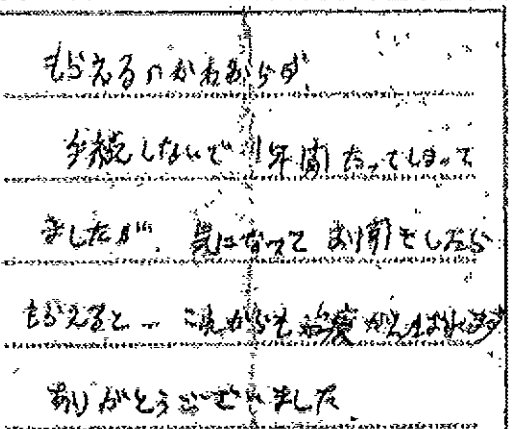 もらえるのかわからず
手続しないで 1年間たってしまって
ましたが、気になって お聞きしたら
もらえると… これからも
ありがとうございました